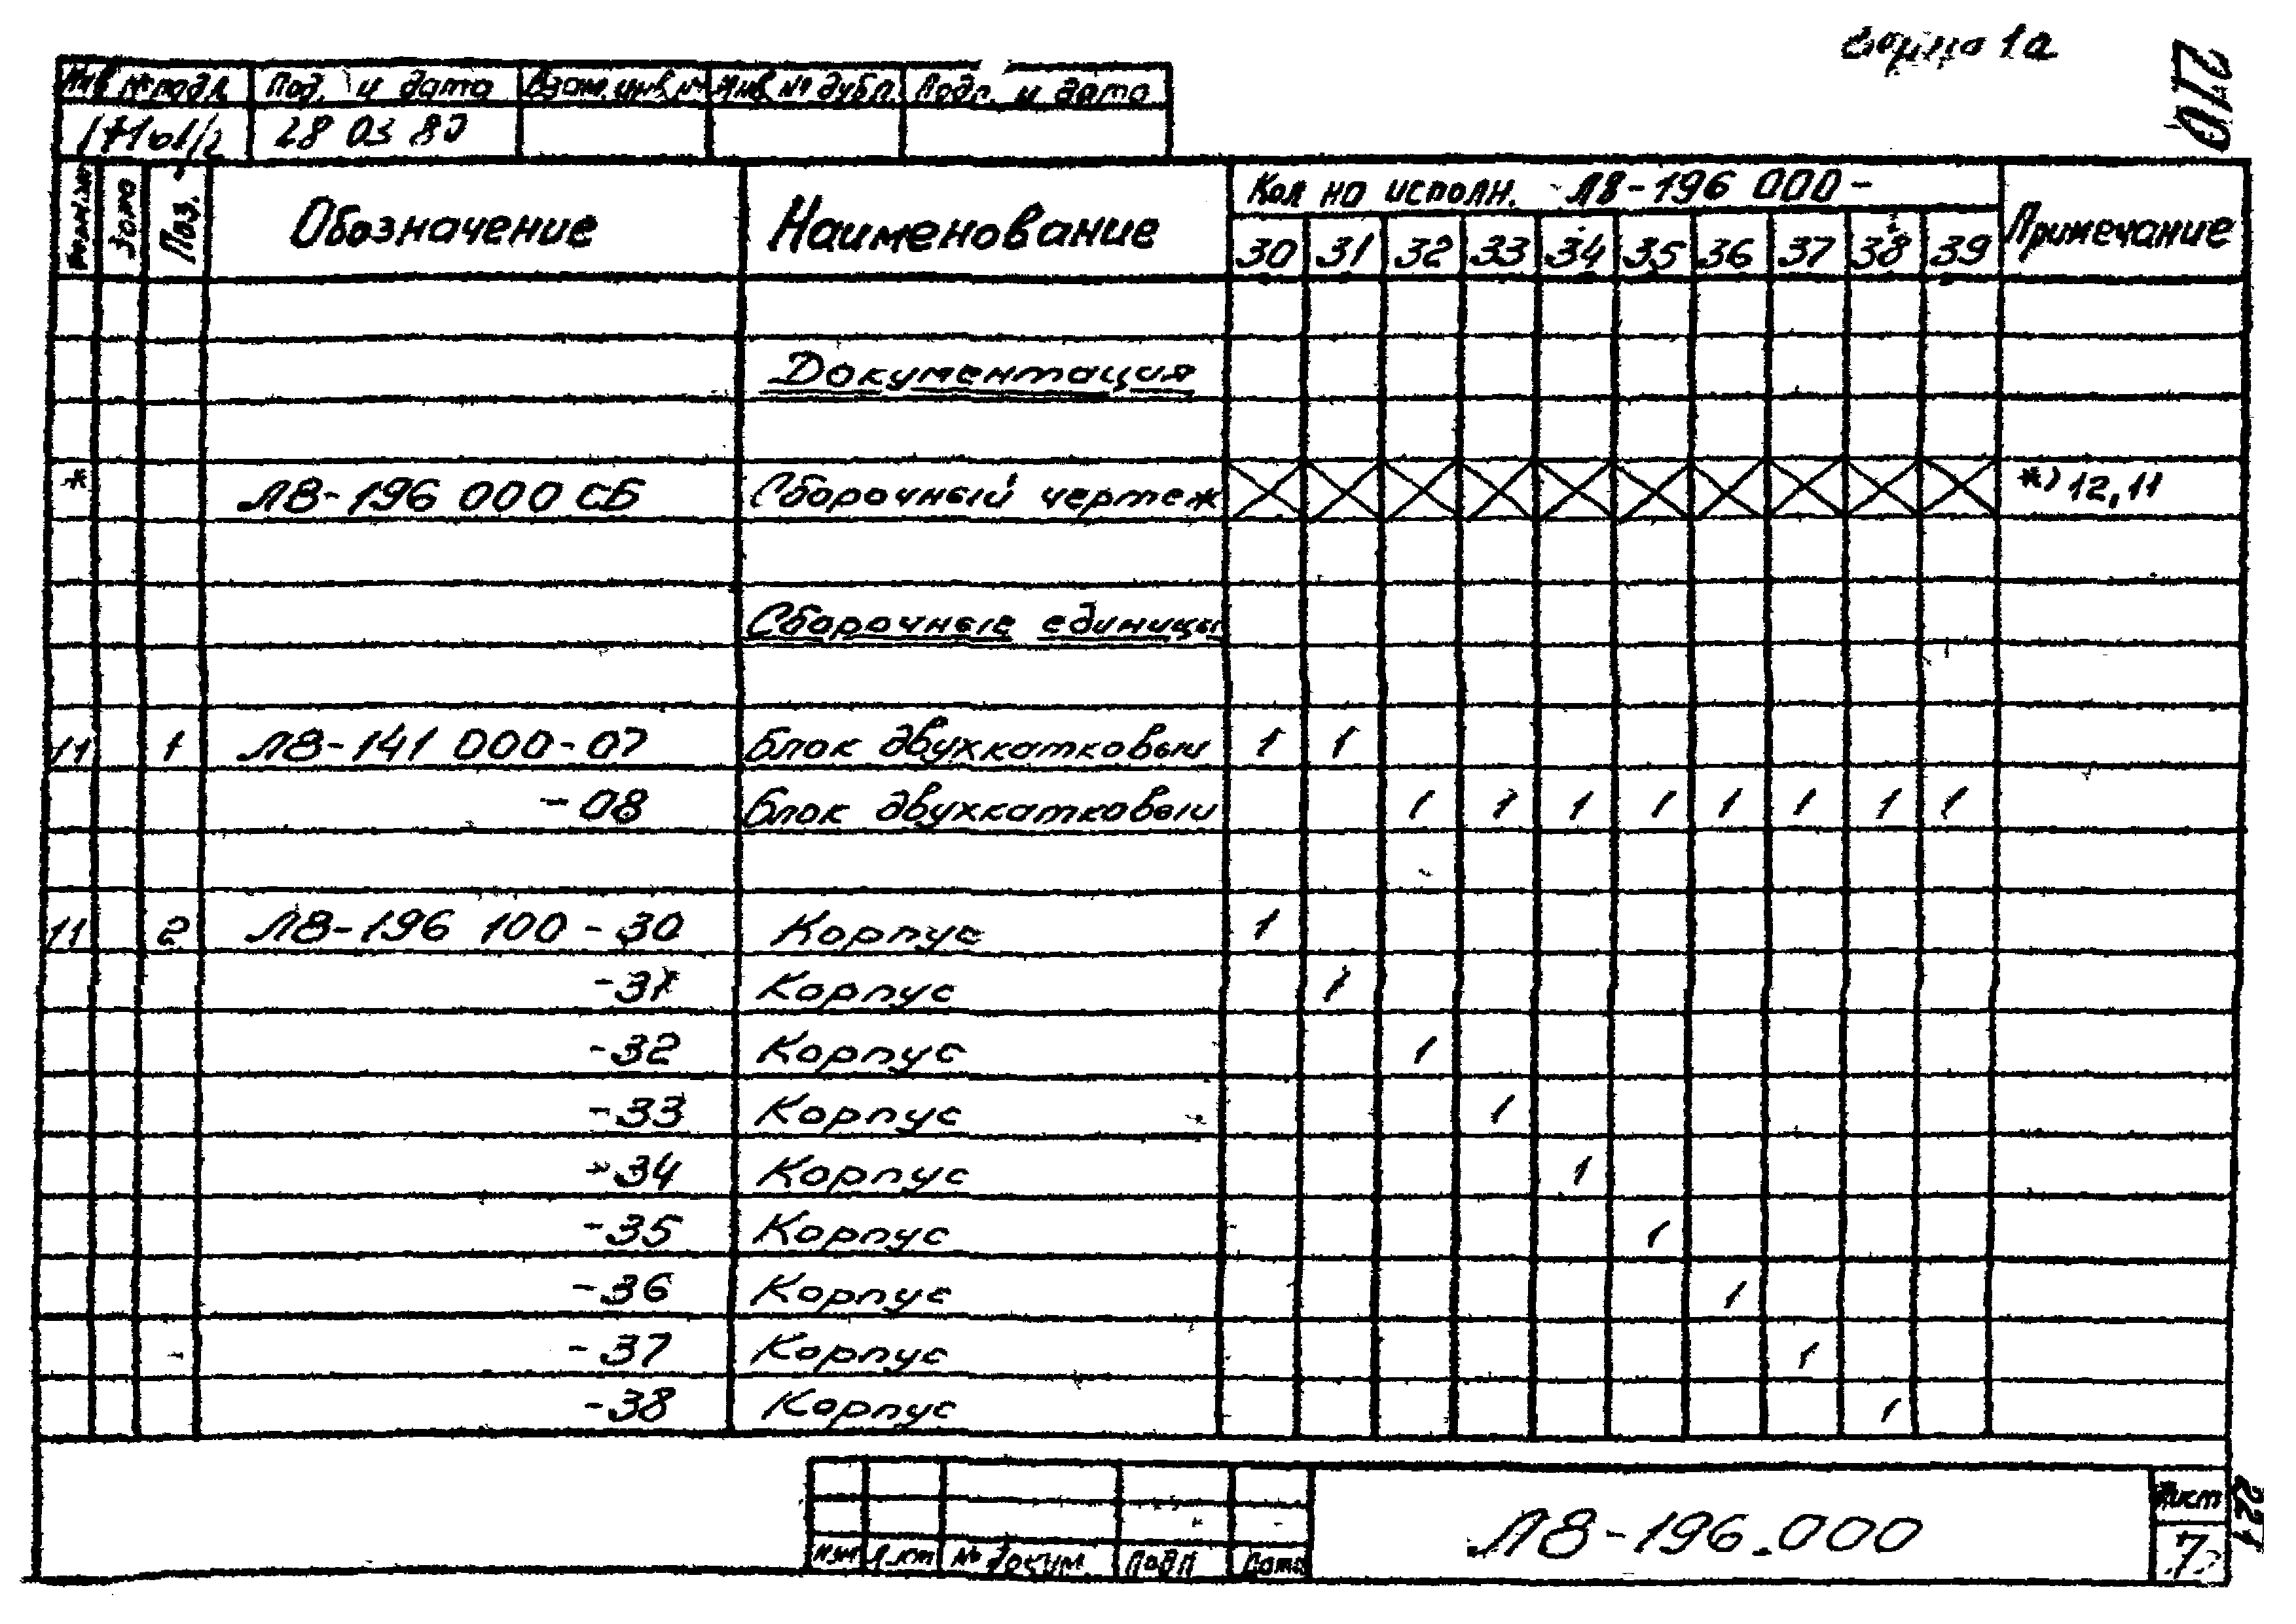 форма 1а
210
Инв № подл. Под. и дата Взам. инв № Инв № дубл. Подп. и дата
28 03 80
Формат Зона Поз. Обозначение Наименование Кол на исполн. Л8-196 000- Примечание
30 31 32 33 34 35 36 37 38 39
Документация
* Л8-196 000 СБ Сборочный чертеж *) 12, 11
Сборочные единицы
11 1 Л8-141 000-07 Блок двухкатковый 1 1
-08 Блок двухкатковый 1 1 1 1 1 1 1 1
11 2 Л8-196 100-30 Корпус 1
-31 Корпус 1
-32 Корпус 1
-33 Корпус 1
-34 Корпус 1
-35 Корпус 1
-36 Корпус 1
-37 Корпус 1
-38 Корпус 1
Изм Лист № докум. Подп Дата Л8-196.000 Лист
7
221